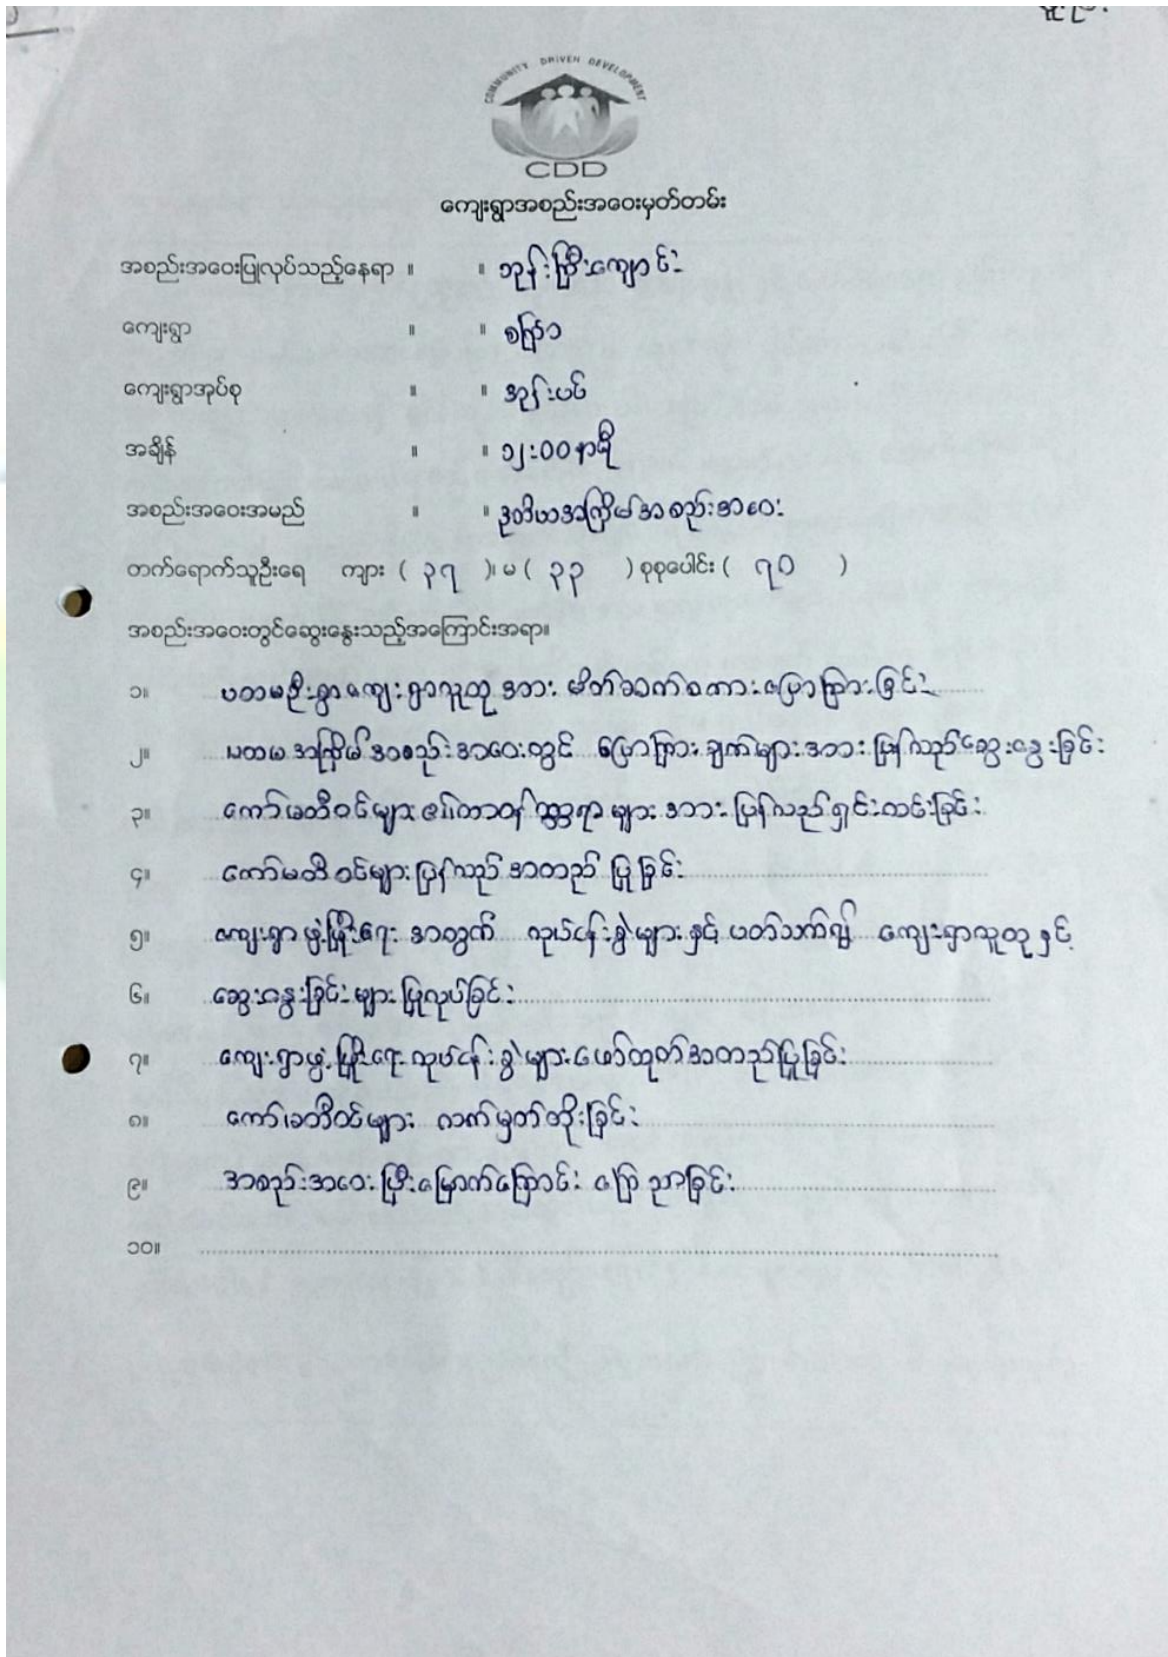 COMMUNITY DRIVEN DEVELOPMENT
CDD
ကျေးရွာအစည်းအဝေးမှတ်တမ်း
အစည်းအဝေးပြုလုပ်သည့်နေရာ ။ ။ ဘုန်းကြီးကျောင်း
ကျေးရွာ ။ ။
ကျေးရွာအုပ်စု ။ ။ အုန်းပင်
အချိန် ။ ။ ၁၂:၀၀ နာရီ
အစည်းအဝေးအမည် ။ ။ ဒုတိယအကြိမ်အစည်းအဝေး
တက်ရောက်သူဦးရေ ကျား ( ၃၇ )၊ မ ( ၃၃ ) စုစုပေါင်း ( ၇၀ )
အစည်းအဝေးတွင်ဆွေးနွေးသည့်အကြောင်းအရာ။
၁။ ပထမဦးစွာ ကျေးရွာလူထု အား မိတ်ဆက်စကား ပြောကြားခြင်း
၂။ ပထမ အကြိမ် အစည်းအဝေးတွင် ပြောကြား ချက်များ အား ပြန်လည်ဆွေးနွေးခြင်း
၃။ ကော်မတီဝင်များ ၏ တာဝန် ဝတ္တရာ များ အား ပြန်လည်ရှင်းလင်းခြင်း
၄။ ကော်မတီ ဝင်များ ပြန်လည် အတည် ပြု ခြင်း
၅။ ကျေးရွာ ဖွံ့ဖြိုးရေး အတွက် လုပ်ငန်းခွဲများ နှင့် ပတ်သက်၍ ကျေးရွာလူထု နှင့်
၆။ ဆွေးနွေးခြင်း များ ပြုလုပ်ခြင်း
၇။ ကျေးရွာဖွံ့ ဖြိုးရေး လုပ်ငန်း ခွဲ များ ဖော်ထုတ်အတည်ပြုခြင်း
၈။ ကော်မတီဝင်များ လက်မှတ်ထိုးခြင်း
၉။ အစည်းအဝေး ပြီးမြောက်ကြောင်း ကြေညာခြင်း
၁၀။